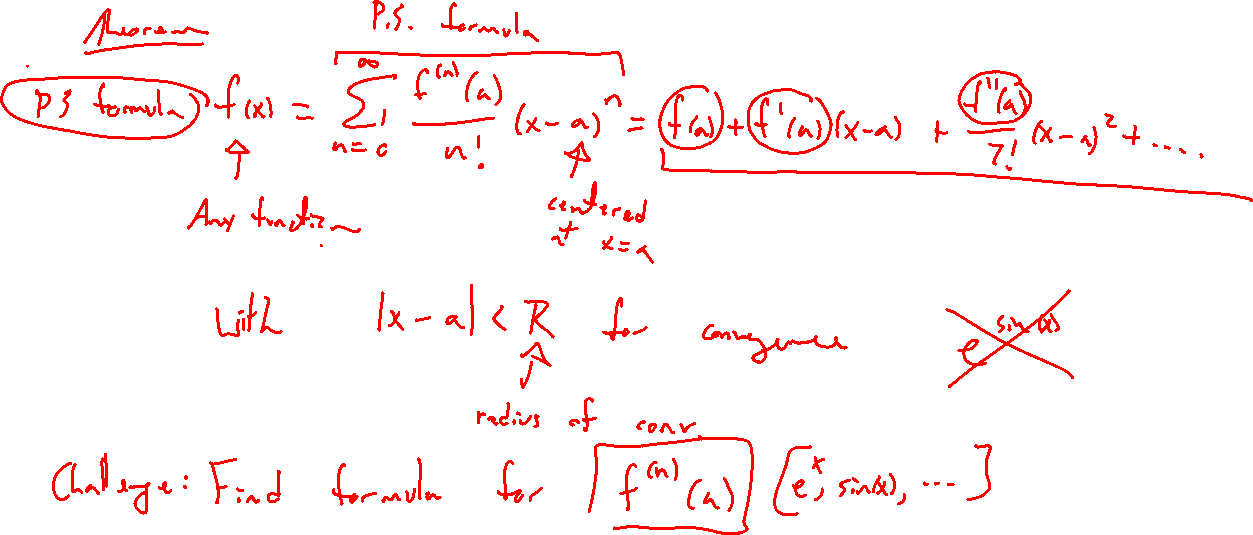 P.S. formula
Theorem
P.S formula f(x) = ∑_{n=0}^{∞} f^{(n)}(a)/n! (x-a)^n = f(a) + f'(a)(x-a) + f''(a)/2! (x-a)^2 + ....
Any function
centered
at x=a
with |x-a| < R for convergence e^{sin(x)}
radius of conv.
Challenge: Find formula for f^{(n)}(a) [e^x, sin(x), ...]